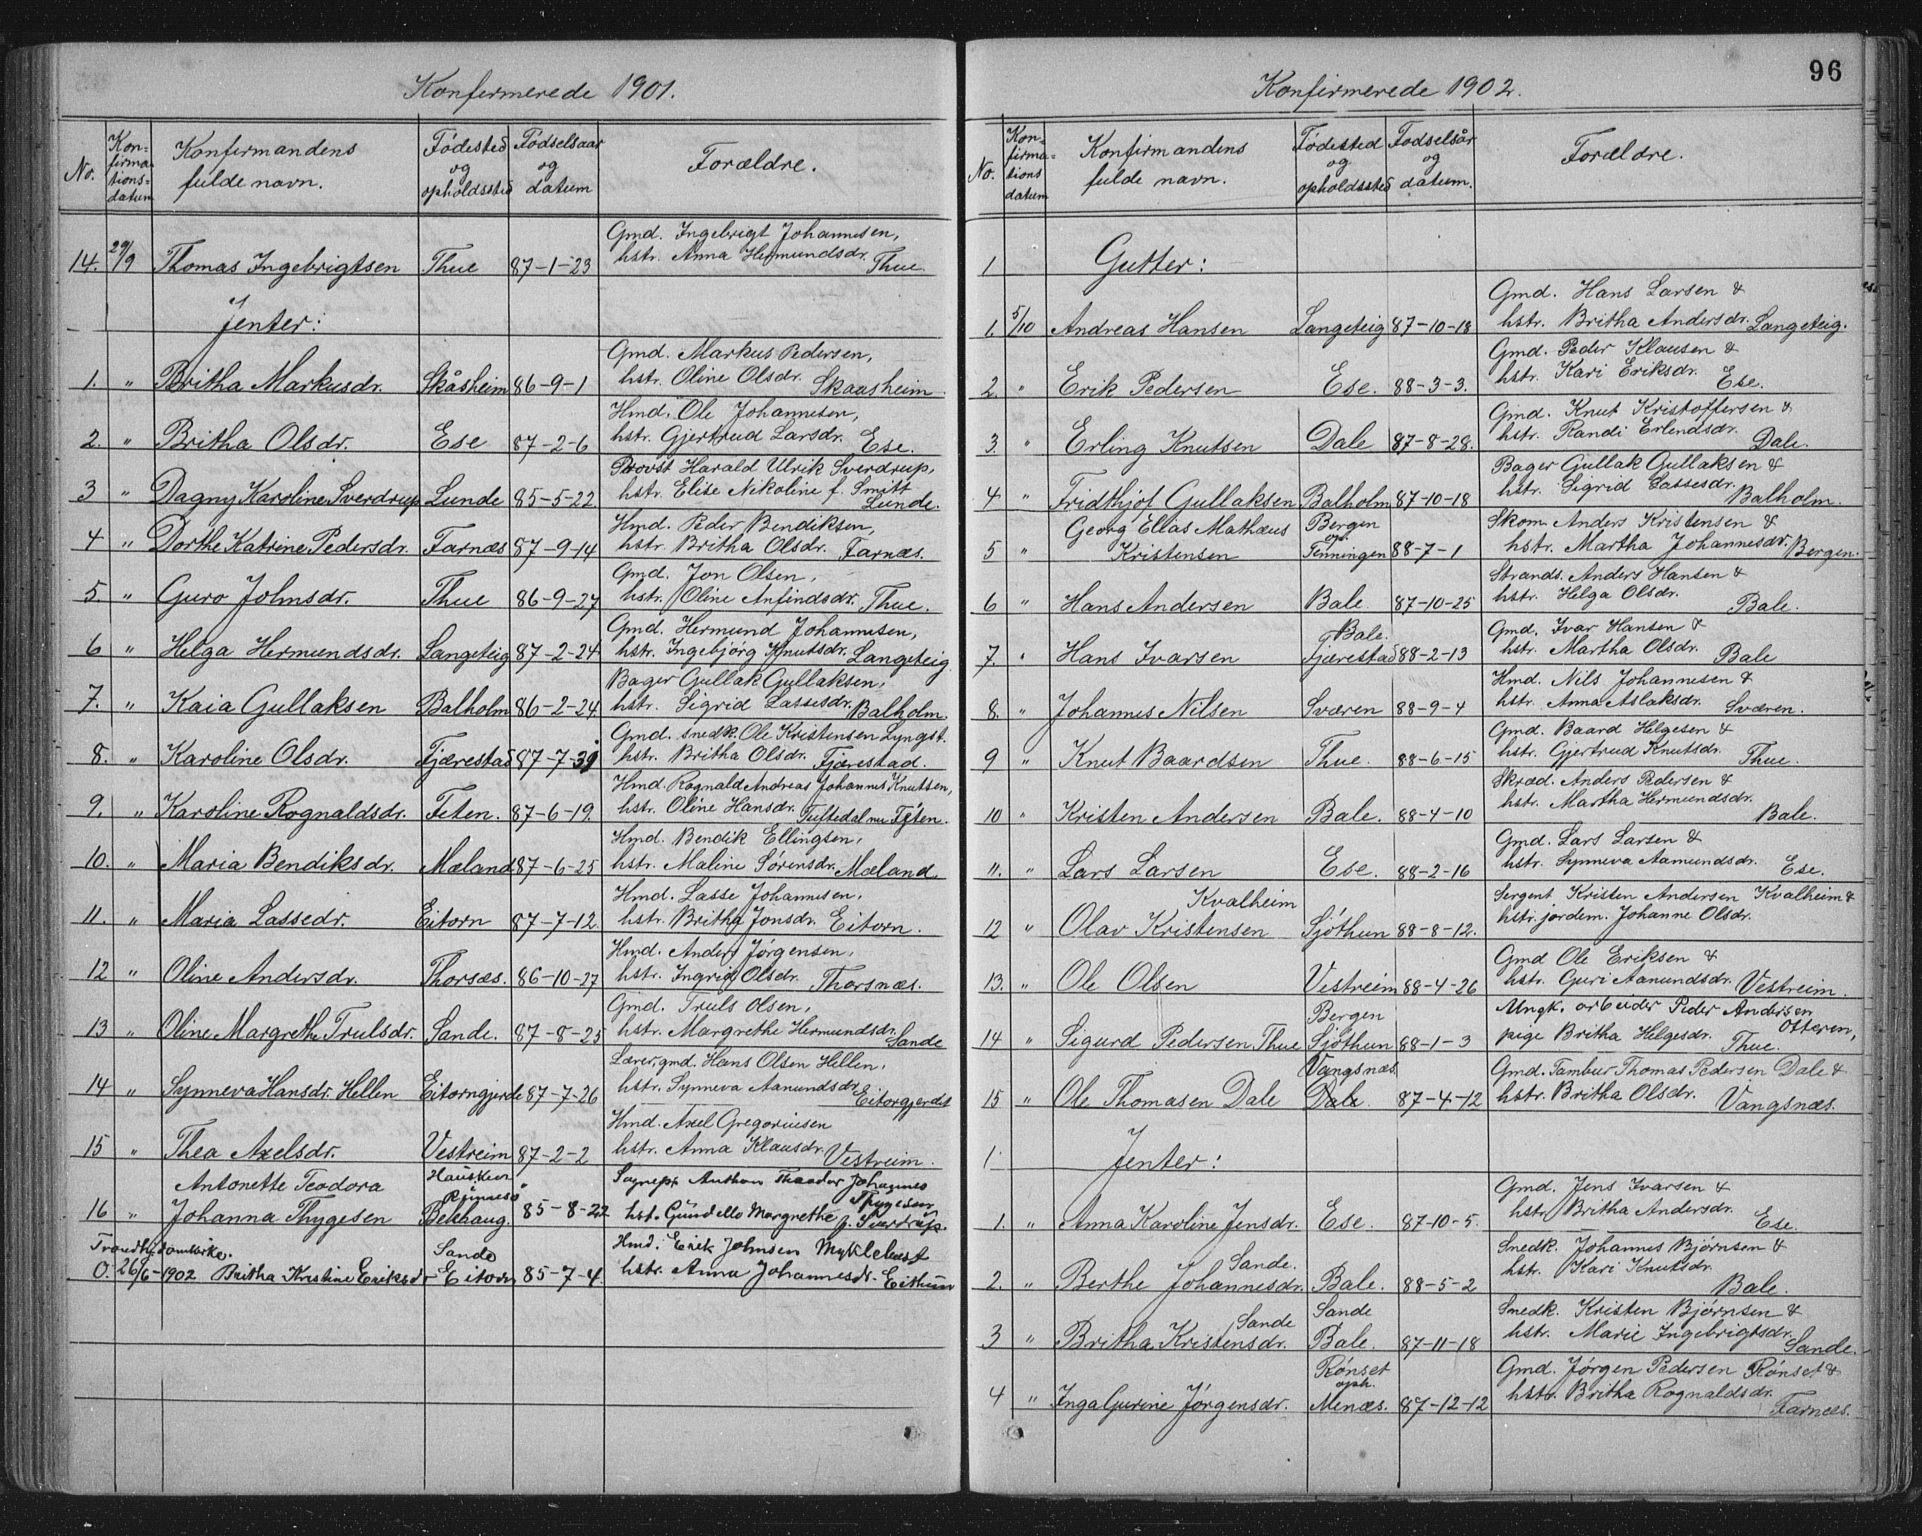 Konfermerede 1901.
No. Kon-firma-tions-datum Konfirmandens fulde navn. Fødested og opholdssted Fødselsaar og datum Forældre.
Gmd. Ingebrigt Johannesen,
14. 29/9 Thomas Ingebrigtsen Thue 87-1-23 hstr. Anna Hermundsdr. Thue.
Jenter:
Gmd. Markus Pedersen,
1. " Britha Markusdr. Skåsheim 86-9-1 hstr. Oline Olsdr. Skaasheim
Hmd. Ole Johannesen,
2. " Britha Olsdr. Ese 87-2-6 hstr. Gjertrud Larsdr. Ese.
Provst Harald Ulrik Sverdrup,
3 " Dagny Karoline Sverdrup Lunde 85-5-22 hstr. Elise Nikoline f. Smitt Lunde.
Hmd. Peder Bendiksen,
4 " Dorthe Katrine Pedersdr. Farnæs 87-9-14 hstr. Britha Olsdr. Farnæs.
Gmd. Jon Olsen,
5. " Guro Johnsdr. Thue 86-9-27 hstr. Oline Anfindsdr. Thue.
Gmd. Hermund Johannesen,
6 " Helga Hermundsdr. Langeteig 87-2-24 hstr. Ingebjørg Knutsdr. Langeteig
Bager Gullak Gullaksen,
7. " Kaia Gullaksen Balholm 86-2-24. hstr. Sigrid Lassesdr. Balholm.
Gmd. snedk. Ole Kristensen Lyngst.
8. " Karoline Olsdr. Fjærestad 87-7-30 hstr. Britha Olsdr. Fjærestad.
Hmd. Rognald Andreas Johannes Knutsen,
9. " Karoline Rognaldsdr. Feten. 87-6-19. hstr. Oline Hansdr. Tuftedal nu Feten.
Hmd. Bendik Ellingsen,
10. " Maria Bendiksdr. Mæland 87-6-25 hstr. Maline Sørensdr. Mæland
Hmd. Lasse Johannesen,
11. " Maria Lassedr. Eitorn 87-7-12. hstr. Britha Jonsdr. Eitorn.
Hmd. Anders Jørgensen,
12 " Oline Andersdr. Thorsæs. 86-10-27 hstr. Ingrid Olsdr. Thorsnæs.
Gmd. Truls Olsen,
13 " Oline Margrethe Trulsdr. Sande. 87-8-25 hstr. Margrethe Hermundsdr. Sande
Lærer, gmd. Hans Olsen Hellen,
14 " Synneva Hansdr. Hellen Eitorngjerde 87-7-26 hstr. Synneva Aamundsdr. Eitorgjerdet
Hmd. Axel Gregoriusen
15 " Thea Axelsdr. Vestreim 87-2-2 hstr. Anna Klausdr. Vestreim.
Antonette Teodora Hausken Sognepr. Anthon Theodor Johannes
Thygesen
16 " Johanna Thygesen Bekhaug. 85-8-22 hst. Gündello Margrethe f. Sverdrup.
Sande Hmd. Erik Johnsen Myklebust
0. 26/6-1902 Britha Kristine Eriksdr Eitorn 85-7-4. hstr. Anna Johannesdr. Eithun
96
Konfirmerede 1902.
No. Kon-firma-tions datum Konfirmandens fulde navn. Fødested og opholdssted Fødselsår og datum. Forældre.
1 Gutter:
Gmd. Hans Larsen &
1. 5/10 Andreas Hansen Langeteig 87-10-18 hstr. Britha Andersdr. Langeteig.
Gmd. Peder Klausen &
2. " Erik Pedersen Ese. 88-3-3. hstr. Kari Eriksdr. Ese.
Gmd. Knut Kristoffersen &
3. " Erling Knutsen Dale. 87-8-28. hstr. Randi Erlendsdr. Dale.
Bager Gullak Gullaksen &
4 " Fridthjof Gullaksen Balholm 87-10-18 hstr. Sigrid Lassesdr. Balholm.
Georg Elias Mathæus Bergen Skom. Anders Kristensen &
op.
5 " Kristensen Tenningen 88-7-1 hstr. Martha Johannesdr. Bergen.
Strands. Anders Hansen &
6 " Hans Andersen Bale. 87-10-25 hstr. Helga Olsdr. Bale.
Bale. Gmd. Ivar Hansen &
7. " Hans Ivarsen Fjærestad 88-2-13 hstr. Martha Olsdr. Bale
Hmd. Nils Johannesen &
8. " Johannes Nilsen Sværen 88-9-4 hstr. Anna Aslaksdr. Sværen.
Gmd. Baard Helgesen &
9 " Knut Baardsen Thue. 88-6-15 hstr. Gjertrud Knutsdr. Thue.
Skræd. Anders Pedersen &
10 " Kristen Andersen Bale. 88-4-10 hstr. Martha Hermundsdr. Bale.
Gmd. Lars Larsen &
11. " Lars Larsen Ese. 88-2-16 hstr. Synneva Aamundsdr. Ese.
Kvalheim Sergent Kristen Andersen Kvalheim &
12 " Olav Kristensen Sjøthun 88-8-12. hstr. jordem. Johanne Olsdr.
Gmd Ole Eriksen &
13. " Ole Olsen Vestreim 88-4-26 hstr. Guri Aamundsdr. Vestreim.
Bergen Ungk. arbeider Peder Andersen Otteren,
14 " Sigurd Pedersen Thue Sjøthun 88-1-3 pige Britha Helgesdr. Thue.
Vangsnæs. Gmd. Tambur Thomas Pedersen Dale &
15 " Ole Thomasen Dale Dale 87-4-12 hstr. Britha Olsdr. Vangsnæs.
1. Jenter:
Gmd. Jens Ivarsen &
1. " Anna Karoline Jensdr. Ese. 87-10-5. hstr. Britha Andersdr. Ese.
Sande. Snedk. Johannes Bjørnsen &
2. " Berthe Johannesdr. Bale. 88-5-2 hstr. Kari Knutsdr. Bale.
Sande Sande Snedk. Kristen Bjørnsen &
3 " Britha Kristensdr. Bale. 87-11-18 hstr. Marie Ingebrigtsdr. Sande.
Rønset Gmd. Jørgen Pedersen Rønset &
oph.
4 " Inga Gurine Jørgensdr. Menæs. 87-12-12 hstr. Britha Rognaldsdr. Farnæs.